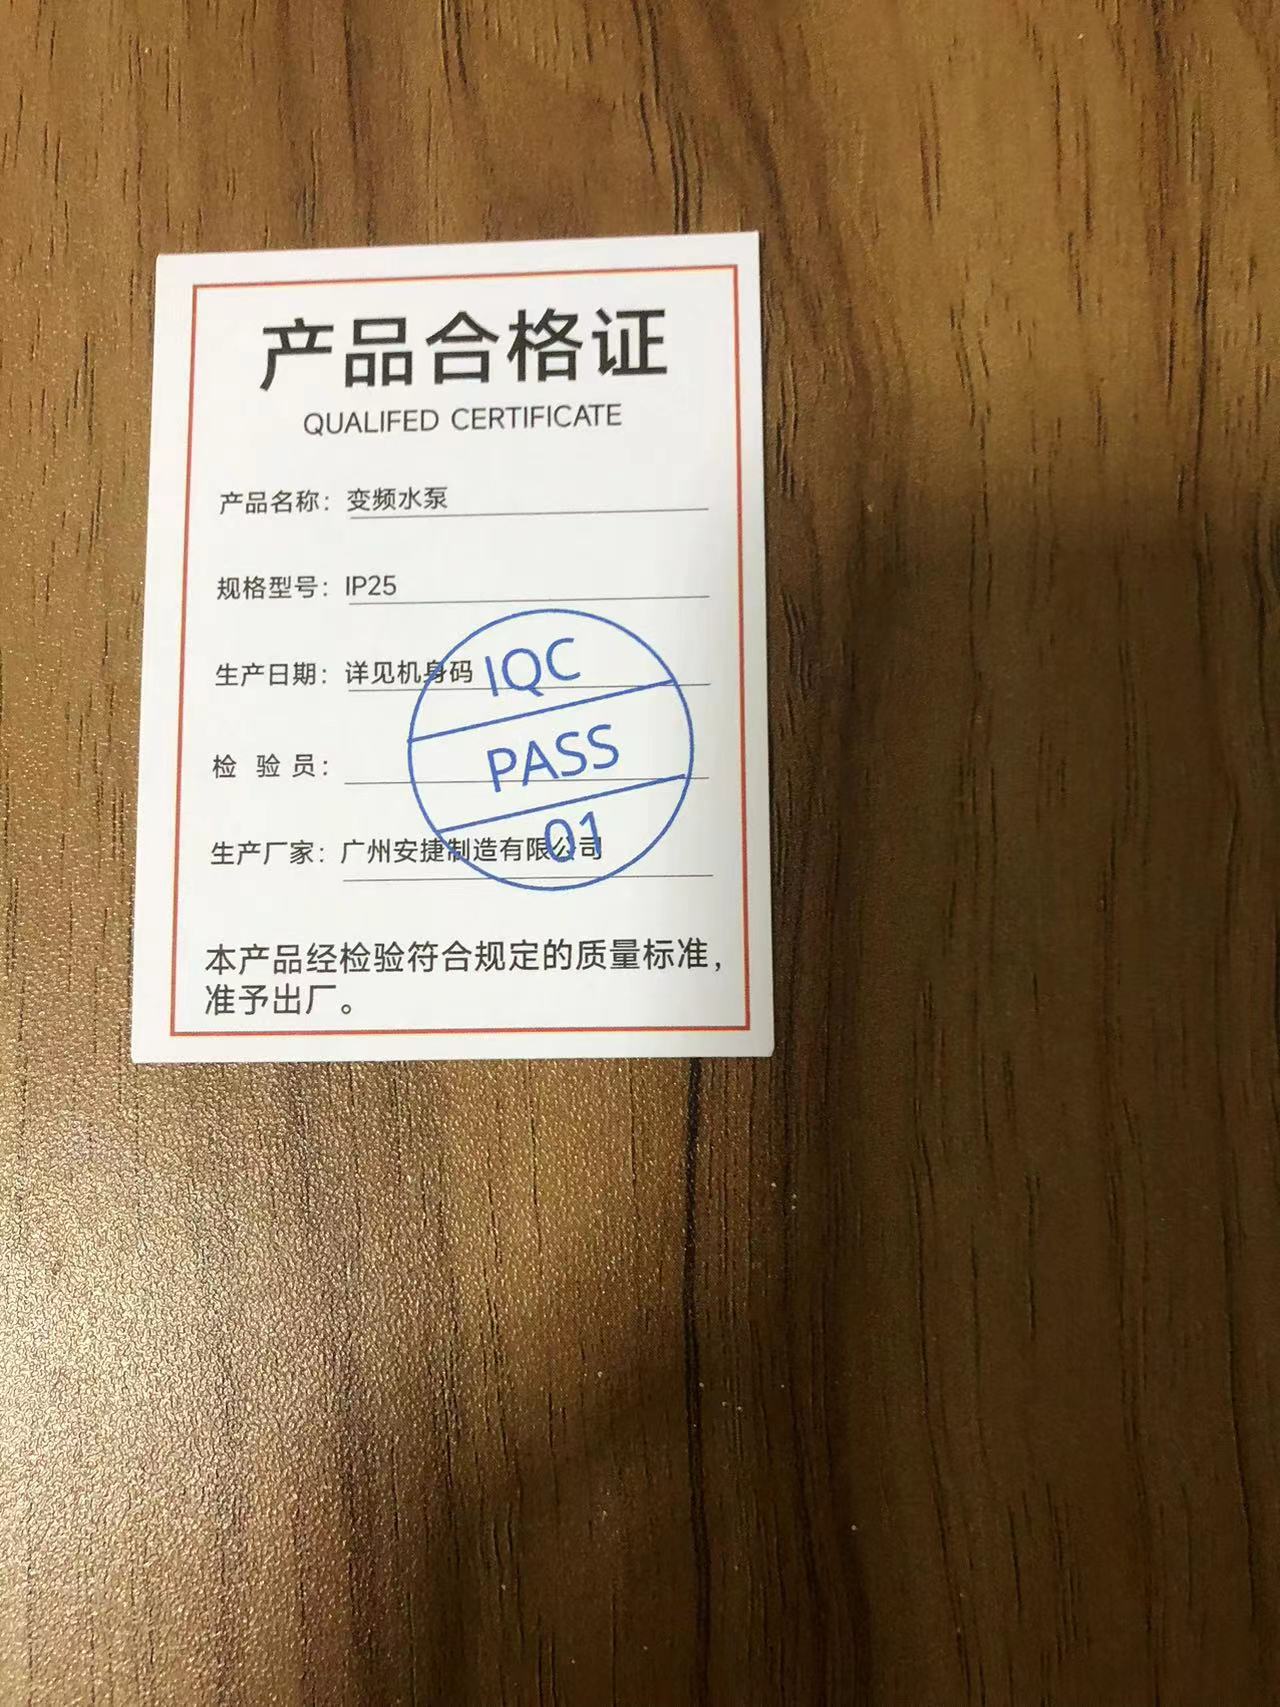 产品合格证
QUALIFED CERTIFICATE
产品名称：变频水泵
规格型号：IP25
生产日期：详见机身码
检 验 员：
生产厂家：广州安捷制造有限公司
IQC
PASS
01
本产品经检验符合规定的质量标准，
准予出厂。